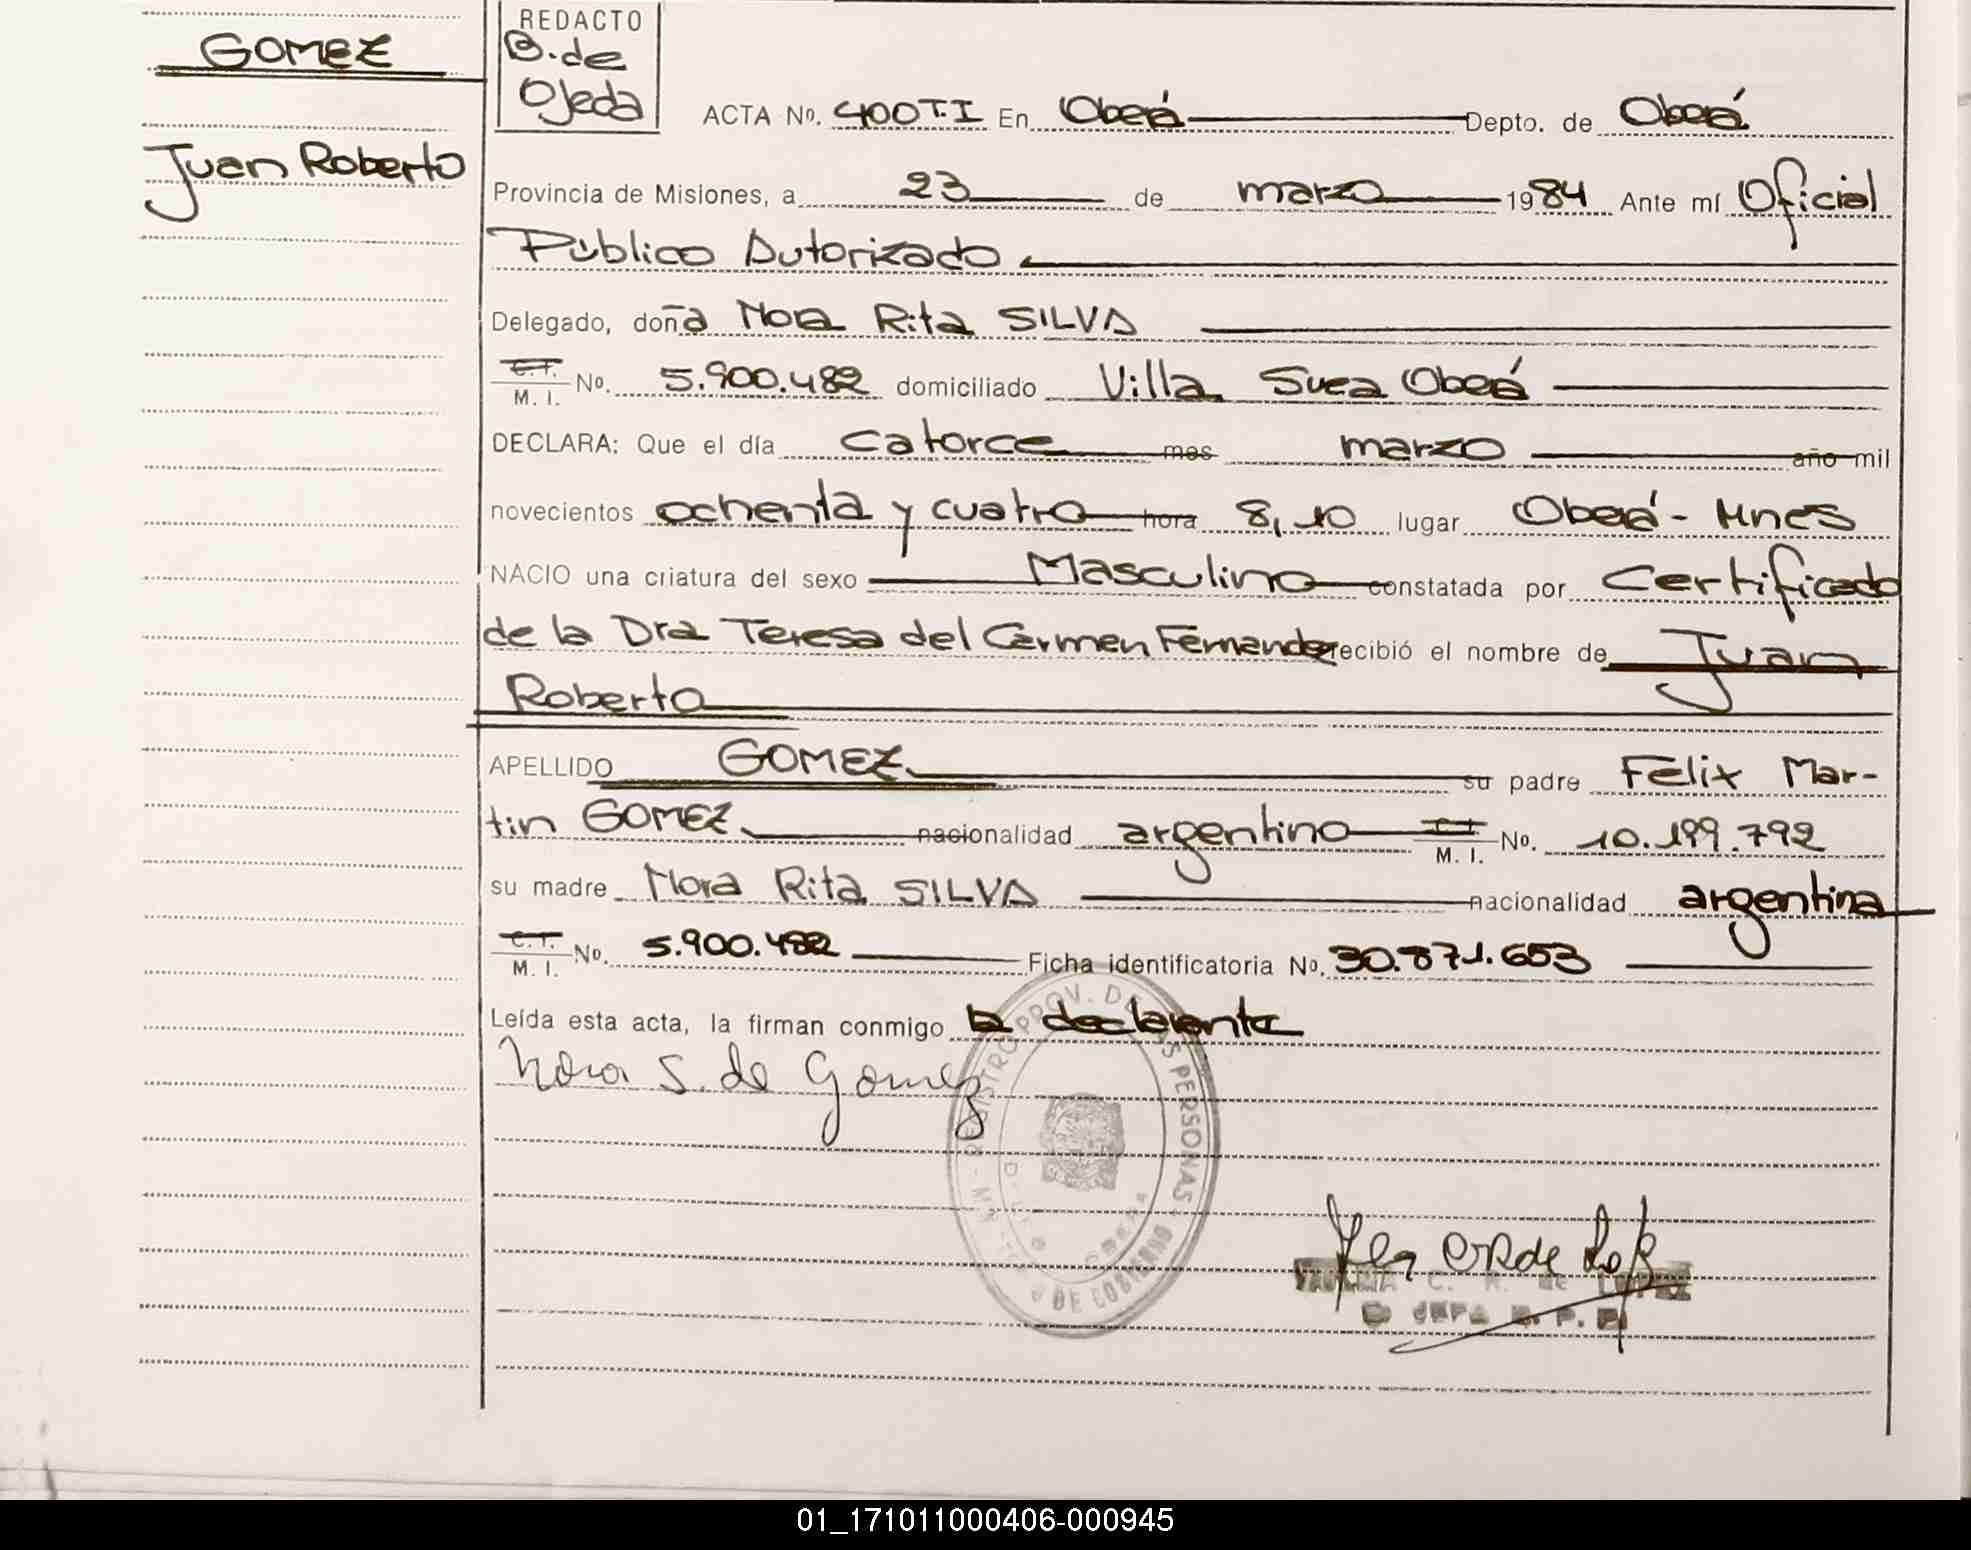 GOMEZ
Juan Roberto
REDACTO
B. de
Ojeda
ACTA No. 400 T.I En Oberá Depto. de Oberá
Provincia de Misiones, a 23 de marzo 1984 Ante mí Oficial
Público Autorizado
Delegado, doña Nora Rita SILVA
C.I. M. I. No. 5.900.482 domiciliado Villa Svea Oberá
DECLARA: Que el día catorce mes marzo año mil
novecientos ochenta y cuatro hora 8,10 lugar Oberá - Mnes
NACIO una criatura del sexo Masculino constatada por Certificado
de la Dra Teresa del Carmen Fernandez recibió el nombre de Juan
Roberto
APELLIDO GOMEZ su padre Felix Mar-
tin GOMEZ nacionalidad argentino C.I. M. I. No. 10.199.792
su madre Nora Rita SILVA nacionalidad argentina
C.I. M. I. No. 5.900.482 Ficha identificatoria No. 30.871.653
Leída esta acta, la firman conmigo la declarante
Nora S. de Gomez
REGISTRO PROV. DE LAS PERSONAS
DE GOBIERNO
C. R. DE LOPEZ
JEFA
01_171011000406-000945